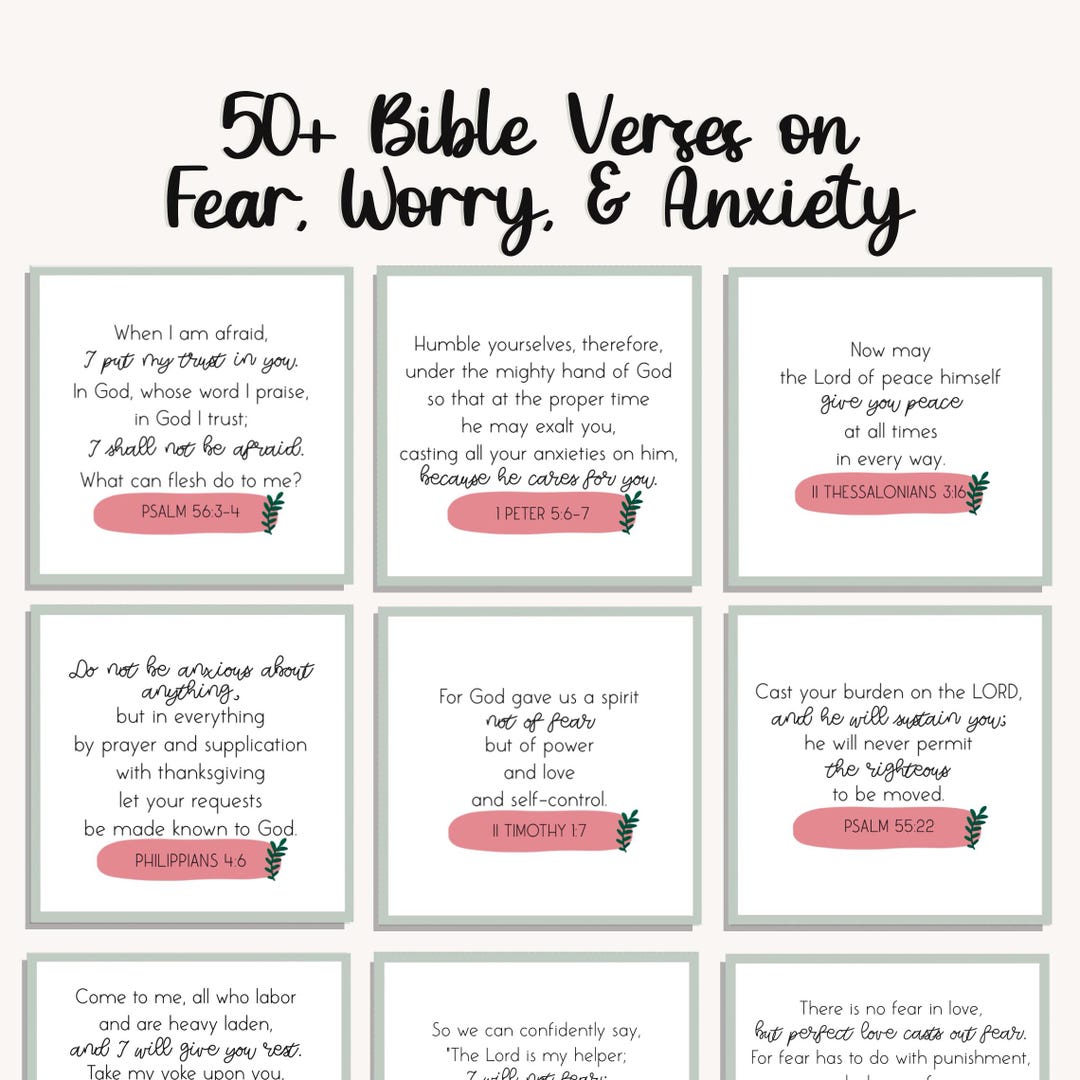 50+ Bible Verses on
Fear, Worry, & Anxiety
When I am afraid,
I put my trust in you.
In God, whose word I praise,
in God I trust;
I shall not be afraid.
What can flesh do to me?
PSALM 56:3-4
Humble yourselves, therefore,
under the mighty hand of God
so that at the proper time
he may exalt you,
casting all your anxieties on him,
because he cares for you.
1 PETER 5:6-7
Now may
the Lord of peace himself
give you peace
at all times
in every way.
II THESSALONIANS 3:16
Do not be anxious about
anything,
but in everything
by prayer and supplication
with thanksgiving
let your requests
be made known to God.
PHILIPPIANS 4:6
For God gave us a spirit
not of fear
but of power
and love
and self-control.
II TIMOTHY 1:7
Cast your burden on the LORD,
and he will sustain you;
he will never permit
the righteous
to be moved.
PSALM 55:22
Come to me, all who labor
and are heavy laden,
and I will give you rest.
Take my yoke upon you,
So we can confidently say,
"The Lord is my helper;
I will not fear;
There is no fear in love,
but perfect love casts out fear.
For fear has to do with punishment,